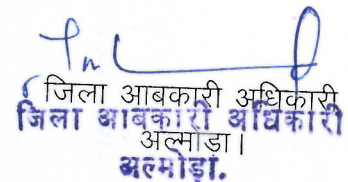 जिला आबकारी अधिकारी
जिला आबकारी अधिकारी
अल्मोड़ा।
अल्मोड़ा.